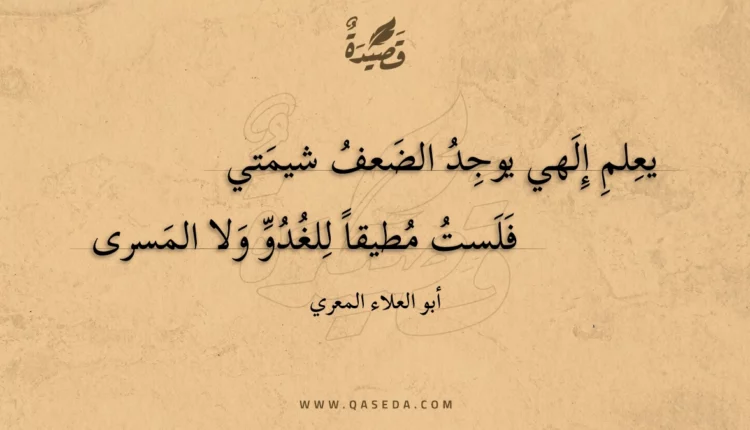 قَصِيدَةٌ
يعِلمِ إِلَهي يوجِدُ الضَعفُ شيمَتي
فَلَستُ مُطيقاً لِلغُدُوِّ وَلا المَسرى
أبو العلاء المعري
WWW.QASEDA.COM